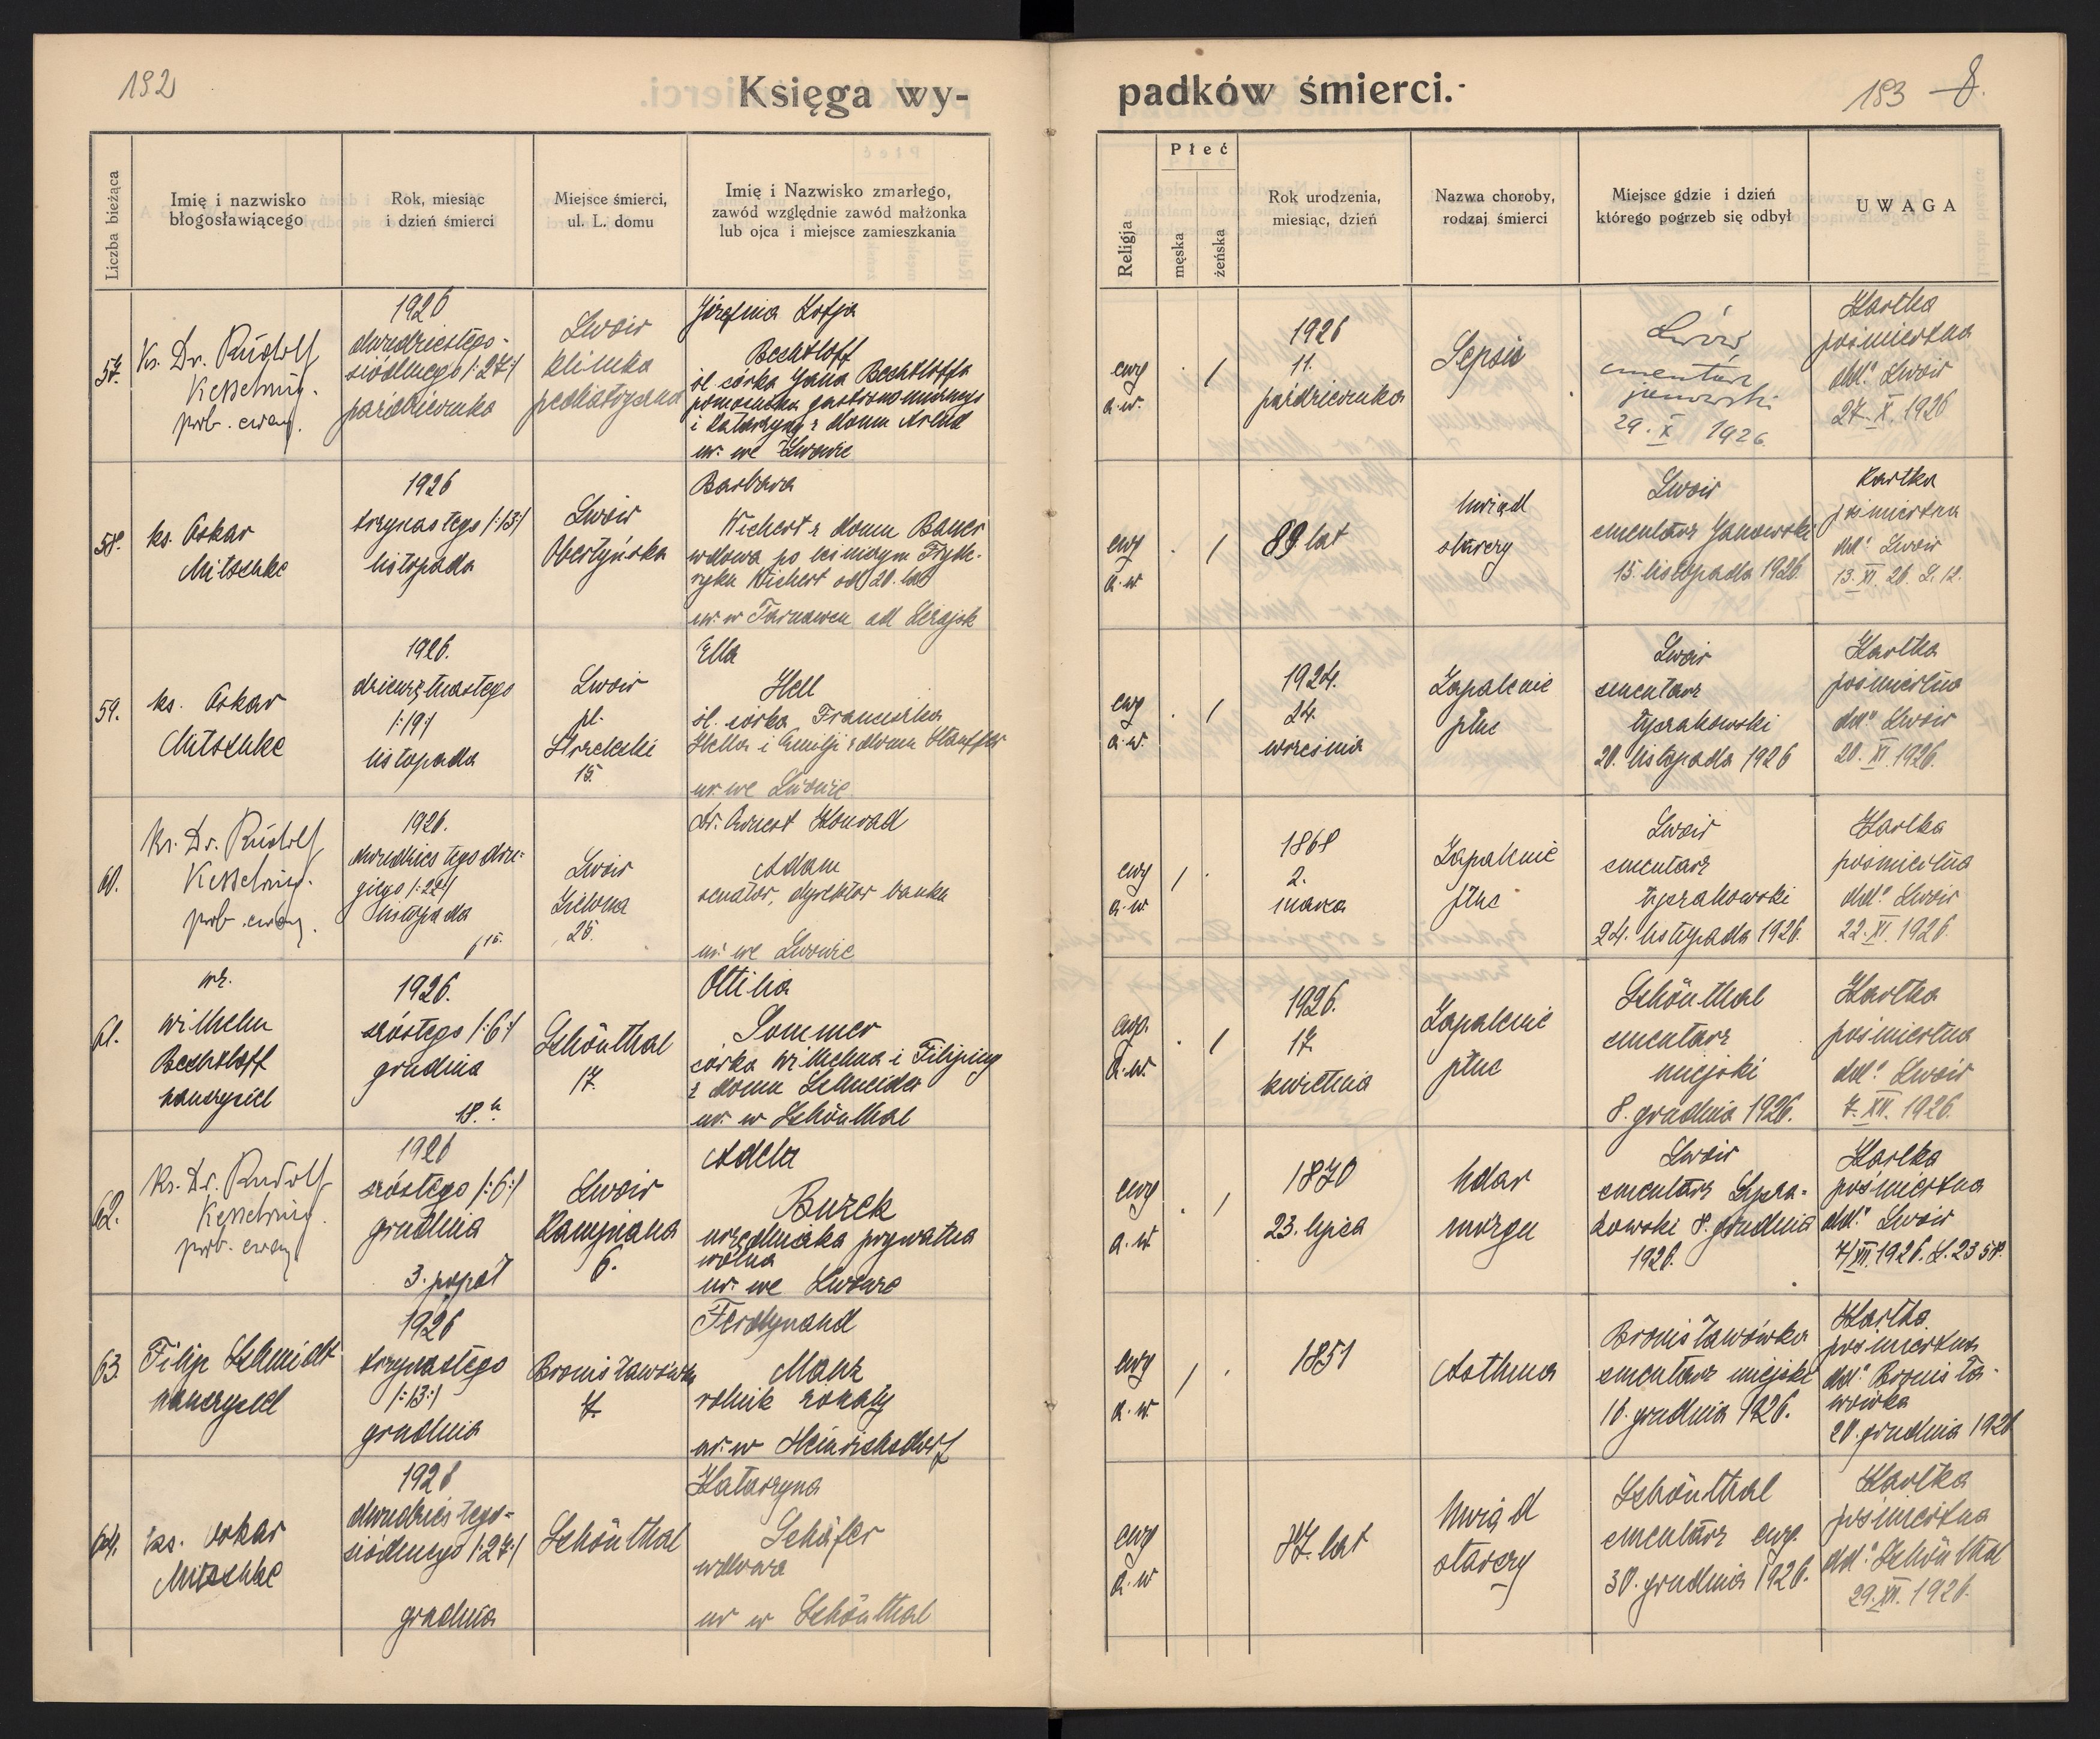 192
Księga wy-
padków śmierci.
193 8.
Liczba bieżąca
Imię i nazwisko
błogosławiącego
Rok, miesiąc
i dzień śmierci
Miejsce śmierci,
ul. L. domu
Imię i Nazwisko zmarłego,
zawód względnie zawód małżonka
lub ojca i miejsce zamieszkania
Religja
Płeć
męska
żeńska
Rok urodzenia,
miesiąc, dzień
Nazwa choroby,
rodzaj śmierci
Miejsce gdzie i dzień
którego pogrzeb się odbył
UWAGA
57.
Ks. Dr. Rudolf
Kesselring.
prob. ewang.
1926
dwudziestego-
siódmego /:27:/
października
Lwów
klinika
pediatryczna
Józefina Zofja
Bechtloff
śl. córka Jana Bechtloffa
i Katarzyny z domu Arend
ur. we Lwowie
ewg
a.w.
/
1926
11.
października
Sepsis
Lwów
cmentarz
janowski
29. X 1926
Kartka
pośmiertna
dd: Lwów
27. X. 1926
58.
ks. Oskar
Mitschke
1926
trzynastego /:13:/
listopada
Lwów
Obertyńska
Barbara
Wichert z domu Bauer
wdowa po leśniczym Fryde-
ryku Wichert od 20. lat
ur. w Tarnawcu ad Leżajsk
ewg
a.w
/
89 lat
Uwiąd
starczy
Lwów
cmentarz Janowski
15. listopada 1926.
Kartka
pośmiertna
dd: Lwów
13. XI. 26. L. 12.
59.
ks. Oskar
Mitschke
1926.
dziewiętnastego
/:19:/
listopada
Lwów
pl.
Strzelecki
15.
Ella
Hell
śl. córka Franciszka
Hella i Emilji z domu
ur. we Lwowie
ewg
a.w.
/
1924.
24.
września
Zapalenie
płuc
Lwów
cmentarz
Łyczakowski
20. listopada 1926
Kartka
pośmiertna
dd: Lwów
20. XI. 1926.
60.
Ks. Dr. Rudolf
Kesselring.
prob. ewang.
1926.
dwudziestego dru-
giego /:22:/
listopada
Lwów
Zielona
25.
Dr. Ernest Konrad
Adam
senator, dyrektor banku
ur. we Lwowie
ewg
a.w
/
1868
2.
marca
Zapalenie
płuc
Lwów
cmentarz
Łyczakowski
24. listopada 1926.
Kartka
pośmiertna
dd: Lwów
22. XI. 1926.
61.
wz.
Wilhelm
Bechtloff
nauczyciel
1926.
szóstego /:6:/
grudnia
18.h
Schönthal
17.
Ottilia
Sommer
córka Wilhelma i Filipiny
z domu Schneider
ur. w Schönthal
ewg.
a.w.
/
1926.
17.
kwietnia
Zapalenie
płuc
Schönthal
cmentarz
miejski
8. grudnia 1926.
Kartka
pośmiertna
dd: Lwów
7. XII. 1926.
62.
Ks. Dr. Rudolf
Kesselring.
prob. ewang
1926
szóstego /:6:/
grudnia
3. popoł
Lwów
Kampiana
6.
Adela
Burek
urzędniczka prywatna
wolna
ur. we Lwowie
ewg
a.w.
/
1870
23. lipca
Udar
mózgu
Lwów
cmentarz Łycza-
kowski 8. grudnia
1926.
Kartka
pośmiertna
dd: Lwów
7/XII. 1926. L. 2358.
63.
Filip Schmidt
nauczyciel
1926
trzynastego
/:13:/
grudnia
Bronisławówka
7.
Ferdynand
Manz
rolnik żonaty
ur. w Heinrichsdorf
ewg
a.w.
/
1851
Asthma
Bronisławówka
cmentarz miejski
16. grudnia 1926.
Kartka
pośmiertna
dd: Bronisła-
wówka
20. grudnia 1926
64.
ks. Oskar
Mitschke
1926
dwudziestego-
siódmego /:27:/
grudnia
Schönthal
Katarzyna
Schäfer
wdowa
ur w Schönthal
ewg
a.w
87. lat
Uwiąd
starczy
Schönthal
cmentarz ewg.
30. grudnia 1926.
Kartka
pośmiertna
dd: Schönthal
29. XII. 1926.